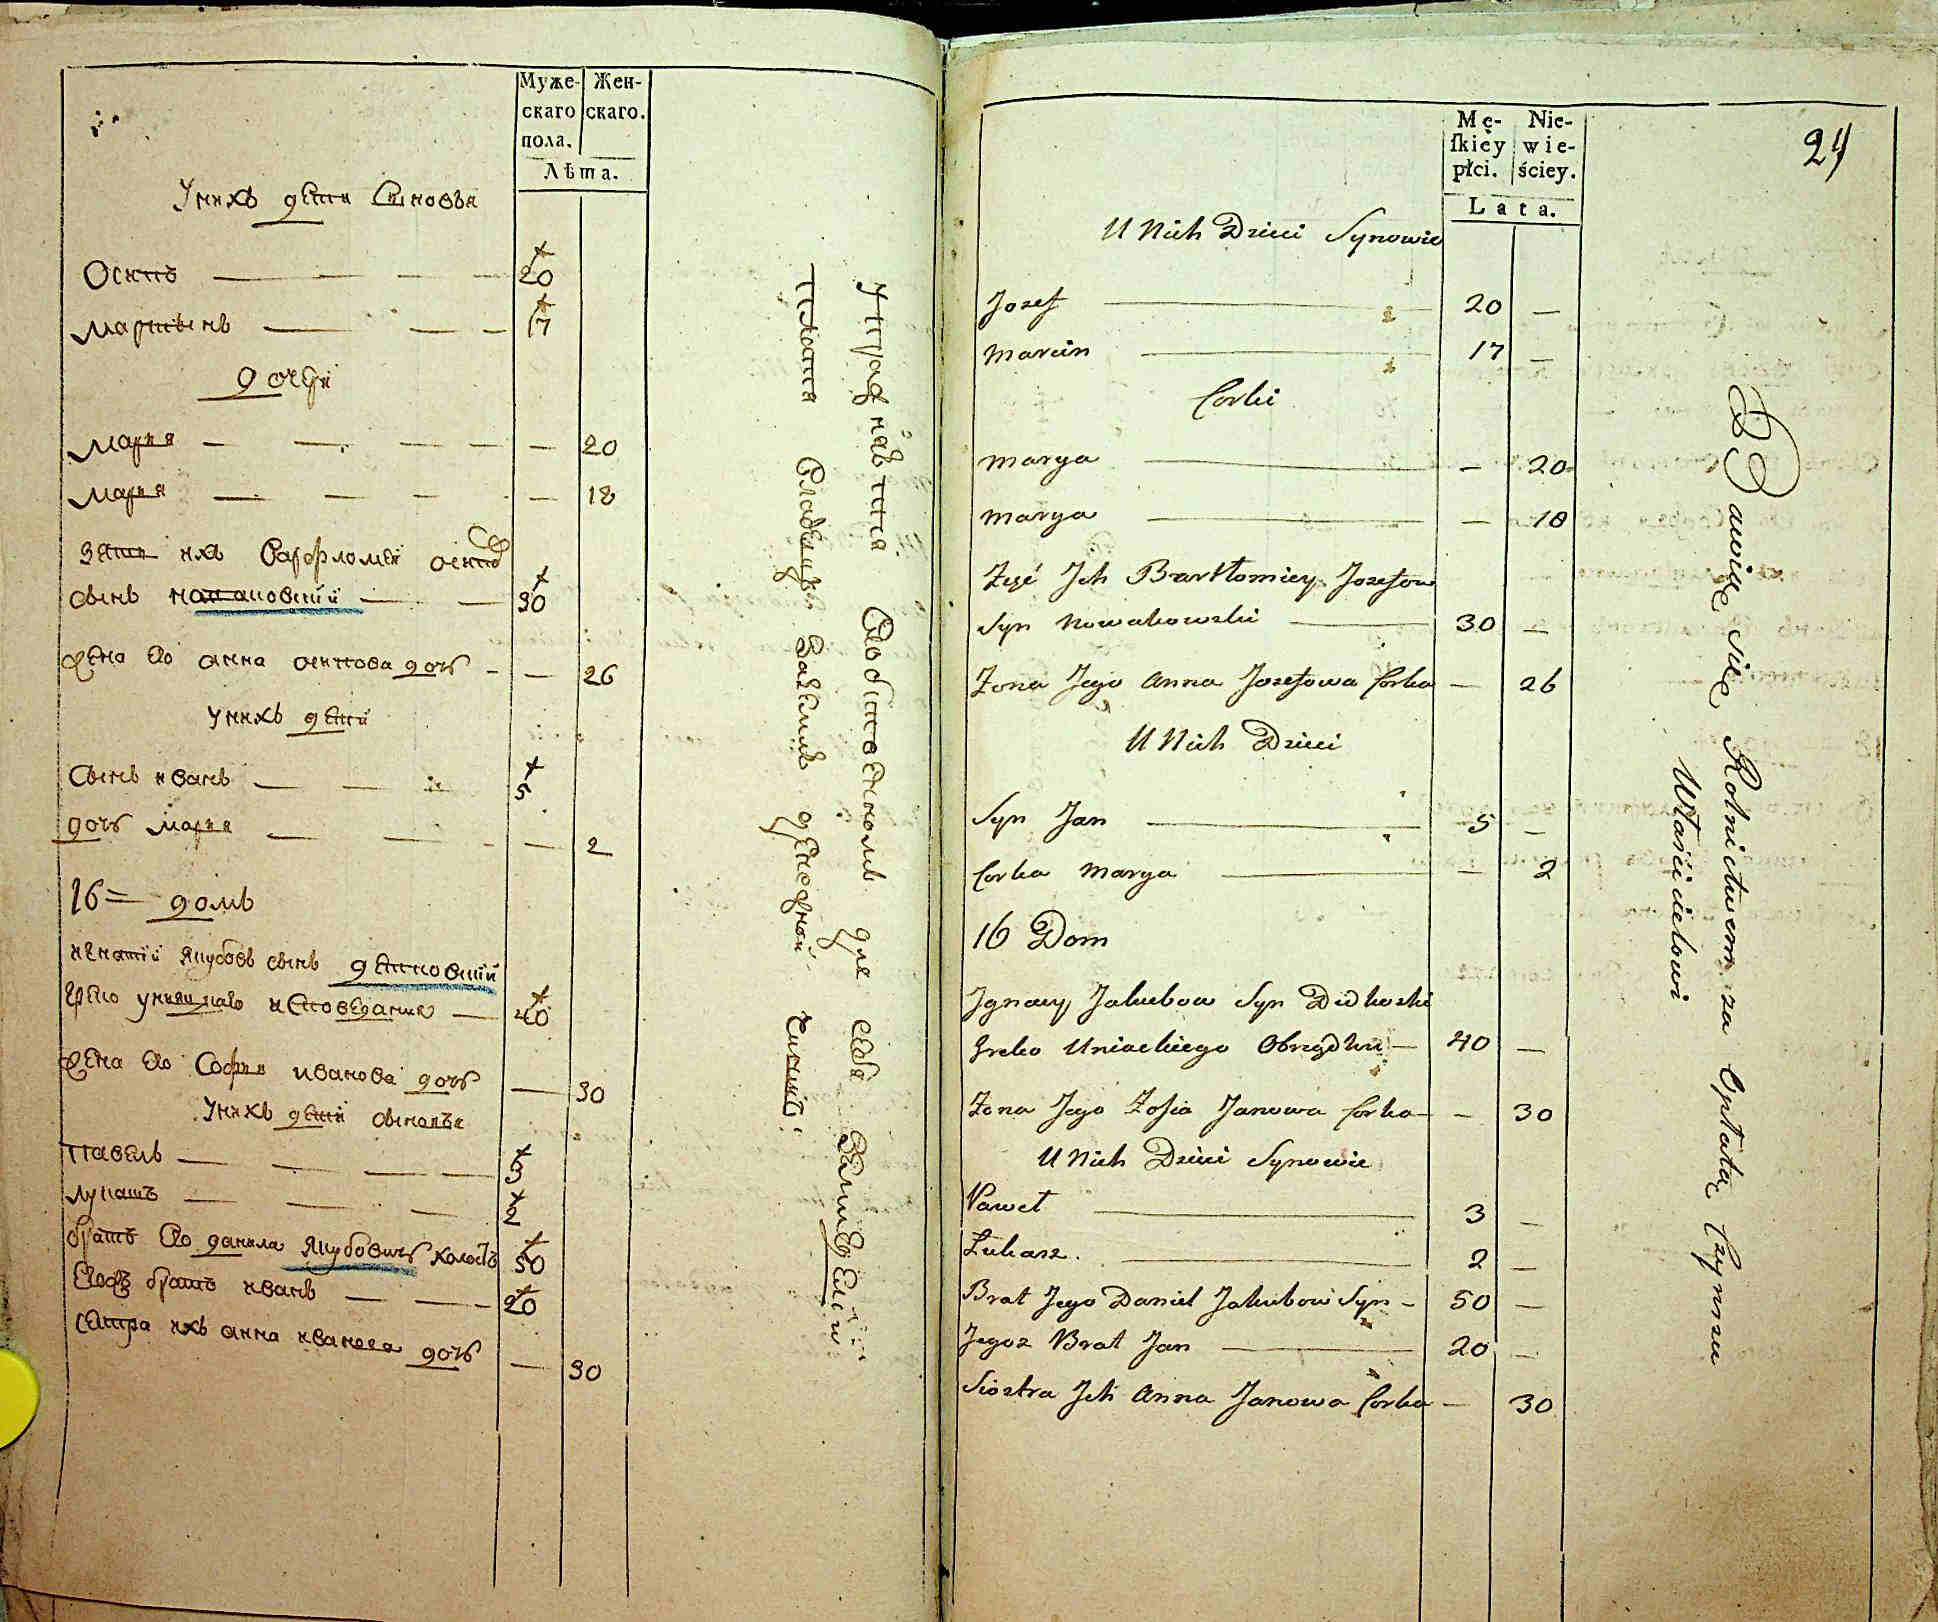 Муже-
скаго
пола.
Жен-
скаго.
Лѣта.
У нихъ дети Синовья
Осипъ — 20
Мартынъ — 17
дочери
Мария — — 20
Мария — — 18
Зять ихъ Варфломей осипо
сынъ — 30
жена его анна осипова дочь — — 26
У нихъ дети
Сынъ иванъ — 5
дочь Мария — — 2
16 = домъ
игнатий якубовъ сынъ
греко униацкаго исповедания — 40
жена его София иванова дочь — 30
У нихъ дети сыновья
Павелъ — 3
Лукашъ — 2
братъ его данила якубовичъ холостъ 50
Егожъ братъ иванъ — 20
сестра ихъ анна иванова дочь — 30
Упражняется хлебопашествомъ для себя
платя владельцу
Mę-
ſkiey
płci.
Nie-
wie-
ściey.
Lata.
24
U Nich Dzieci Synowie
Jozef — 20 —
Marcin — 17 —
Corki
Marya — — 20
Marya — — 18
Zięć Jch Bartłomiey Jozefow
Syn Nowakowski — 30 —
Zona Jego Anna Jozefowa Corka — 26
U Nich Dzieci
Syn Jan — 5 —
Corka Marya — — 2
16 Dom
Jgnacy Jakubow Syn Didkoski
Greko Uniackiego Obrządku — 40 —
Zona Jego Zofia Janowa Corka — — 30
U Nich Dzieci Synowie
Paweł — 3 —
Łukasz — 2 —
Brat Jego Daniel Jakubow Syn — 50 —
Jegoz Brat Jan — 20 —
Siostra Jch Anna Janowa Corka — 30
Bawiące się Rolnictwem za Opłatą Czynszu
Włascicielowi